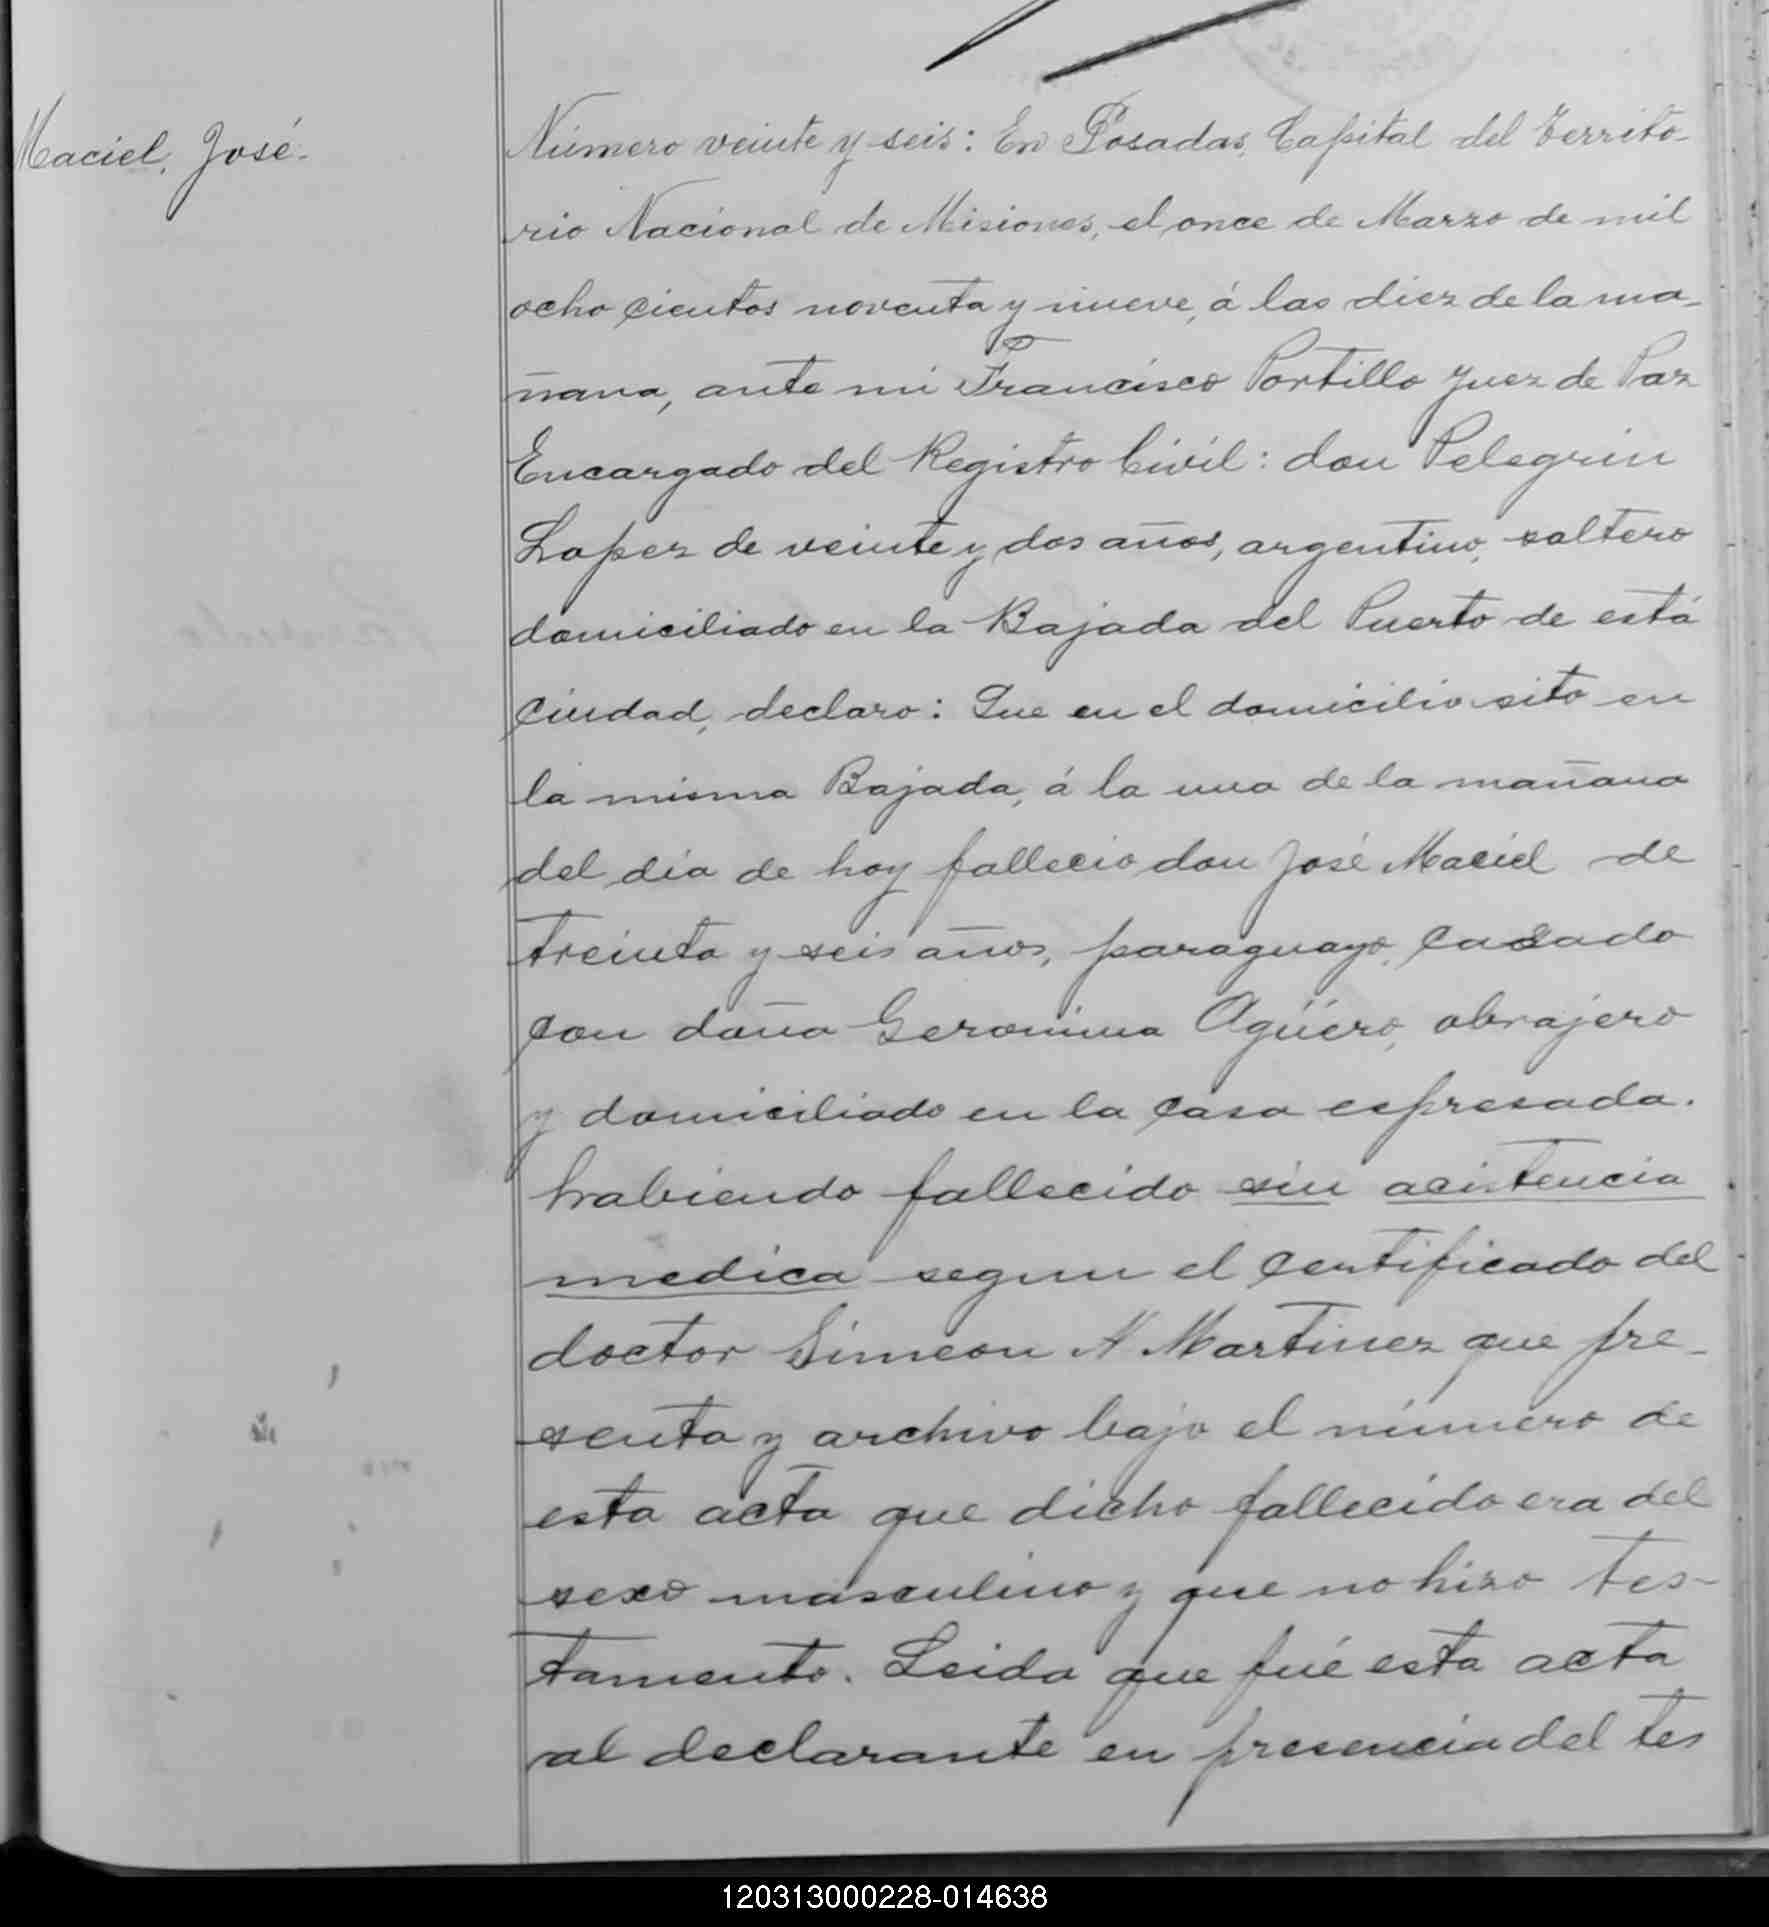 Maciel, José.
Número veinte y seis: En Posadas, Capital del Territo-
rio Nacional de Misiones, el once de Marzo de mil
ocho cientos noventa y nueve, á las diez de la ma-
ñana, ante mi Francisco Portillo Juez de Paz
Encargado del Registro Civil: don Pelegrin
Lopez de veinte y dos años, argentino, soltero
domiciliado en la Bajada del Puerto de está
Ciudad, declaro: Que en el domicilio sito en
la misma Bajada, á la una de la mañana
del día de hoy fallecio don José Maciel de
treinta y seis años, paraguayo, casado
con doña Geronima Agüero, obrajero
y domiciliado en la casa espresada.
habiendo fallecido sin acistencia
medica segun el certificado del
doctor Simeon A Martinez que pre-
senta y archivo bajo el número de
esta acta que dicho fallecido era del
sexo masculino y que no hizo tes-
tamento. Leida que fué esta acta
al declarante en presencia del tes
120313000228-014638